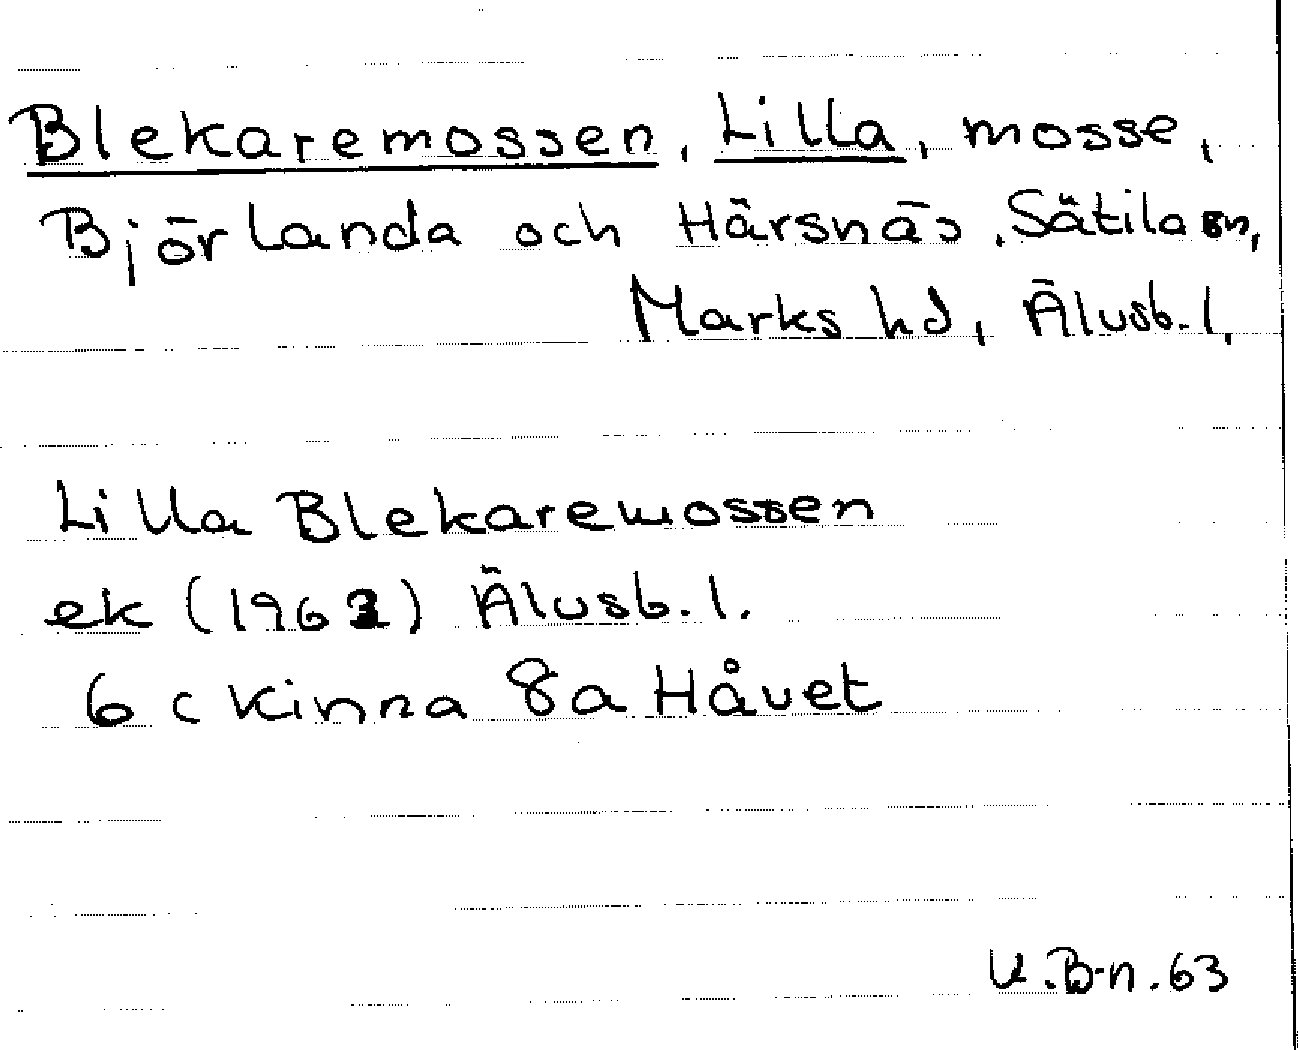 Blekaremossen, Lilla, mosse,
Björlanda och Härsnäs, Sätila sn,
Marks hd, Älvsb. l.
Lilla Blekaremossen
ek (1963) Älvsb. l.
6 c Kinna 8a Håvet
V.B-n.63